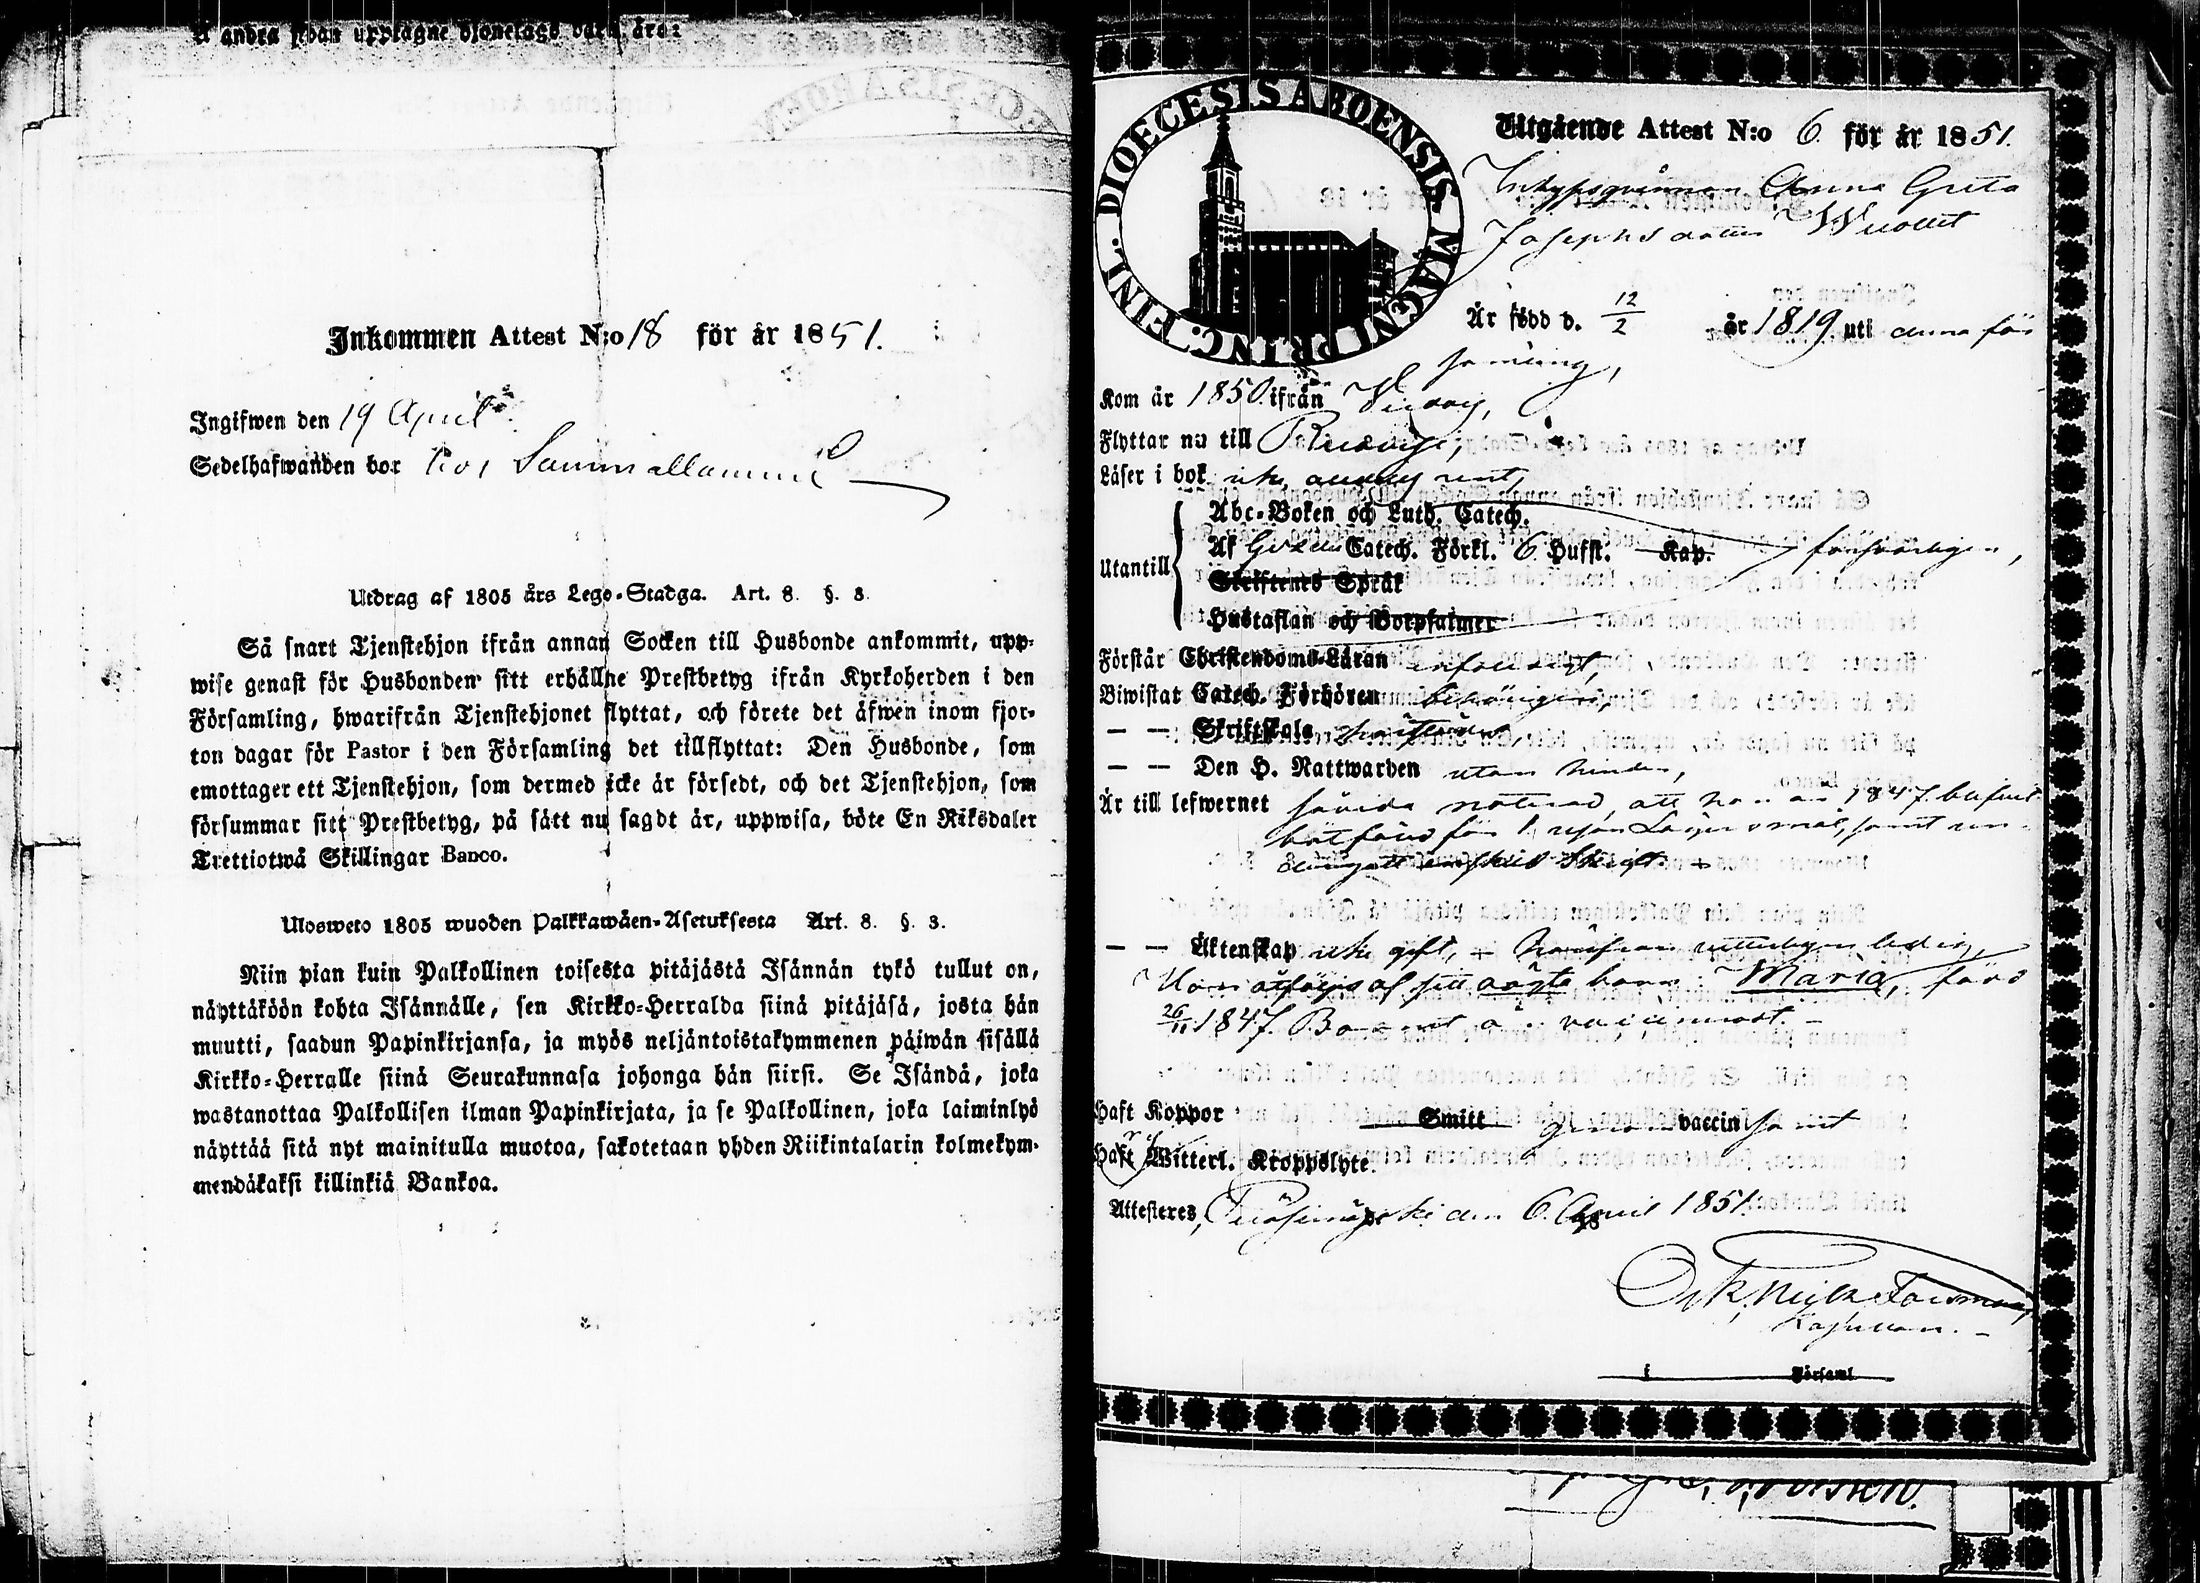 Inkommen Attest N:o 18 för år 1851.
Ingifwen den 19 April
Sedelhafwanden bor hos
Utdrag af 1805 års Lego-Stadga. Art. 8. §. 3.
Så snart Tjenstehjon ifrån annan Socken till Husbonde ankommit, upp-
wise genast för Husbonden sitt erhållne Prestbetyg ifrån Kyrkoherden i den
Församling, hwarifrån Tjenstehjonet flyttat, och förete det äfwen inom fjor-
ton dagar för Pastor i den Församling det tillflyttat: Den Husbonde, som
emottager ett Tjenstehjon, som dermed icke är försedt, och det Tjenstehjon, som
försummar sitt Prestbetyg, på sätt nu sagdt är, uppwisa, böte En Riksdaler
Trettiotwå Skillingar Banco.
Ulosweto 1805 wuoden Palkkawäen-Asetuksesta Art. 8. §. 3.
Niin pian kuin Palkollinen toisesta pitäjästä Isännän tykö tullut on,
näyttäköön kohta Isännälle, sen Kirkko-Herralda siinä pitäjäsä, josta hän
muutti, saadun Papinkirjansa, ja myös neljäntoistakymmenen päiwän sisällä
Kirkko-Herralle siinä Seurakunnasa johonga hän siirsi. Se Isändä, joka
wastanottaa Palkollisen ilman Papinkirjata, ja se Palkollinen, joka laiminlyö
näyttää sitä nyt mainitulla muotoa, sakotetaan yhden Riikintalarin kolmekym-
mendäkaksi killinkiä Bankoa.
DIOECESIS ABOENSIS MAGNI PRINC. FINL.
Utgående Attest N:o 6. för år 1851.
Inhysesqvinnan Anna Greta
Josephsdotter
Är född d. 12/2 år 1819 uti denna för
samling,
Kom år 1850 ifrån
Flyttar nu till
Läser i bok
Abc-Boken och Luth. Catech.
Utantill Af Catech. Förkl. 6 Hufst. Kap. försvarligen,
Skriftenes Språk
Hustaflan och Botpsalmer
Förstår Christendoms-Läran enfaldigt,
Biwistat Catech. Förhören behörigen,
— — Skriftskola
— — Den H. Nattwarden utan hinder,
Är till lefwernet såvida noterad, att hon år 1847 blifvit
botfäld för 1 resan Lägersmål, samt un-
dergått enskild Skrift.
— — Äktenskap icke gift,
Hon åtföljes af sitt oägta barn: Maria, född
26/11 1847. Barnet är vaccineradt. —
Haft Koppor Smitt vaccin samt
Haft Witterl. Kroppslyte.
Attesteres, den 6 April 1851.
Kapellan. —
i Församl.